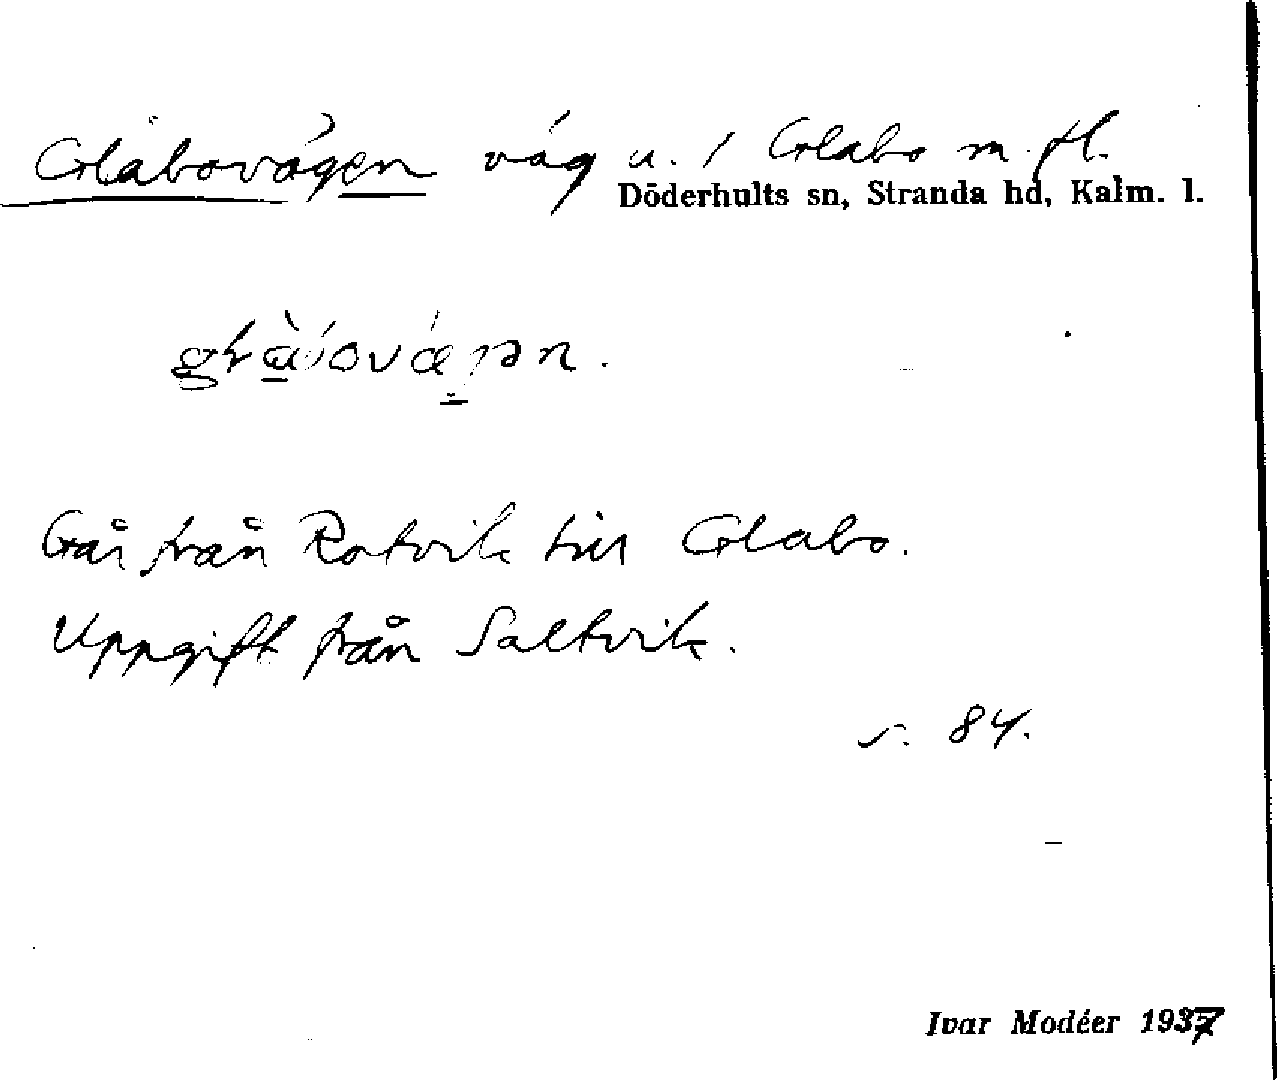 Glabovägen väg u. 1 Glabo m. fl.
Döderhults sn, Stranda hd, Kalm. l.
Går från Rotvik till Glabo.
Uppgift från Saltvik.
s. 84.
Ivar Modéer 1937